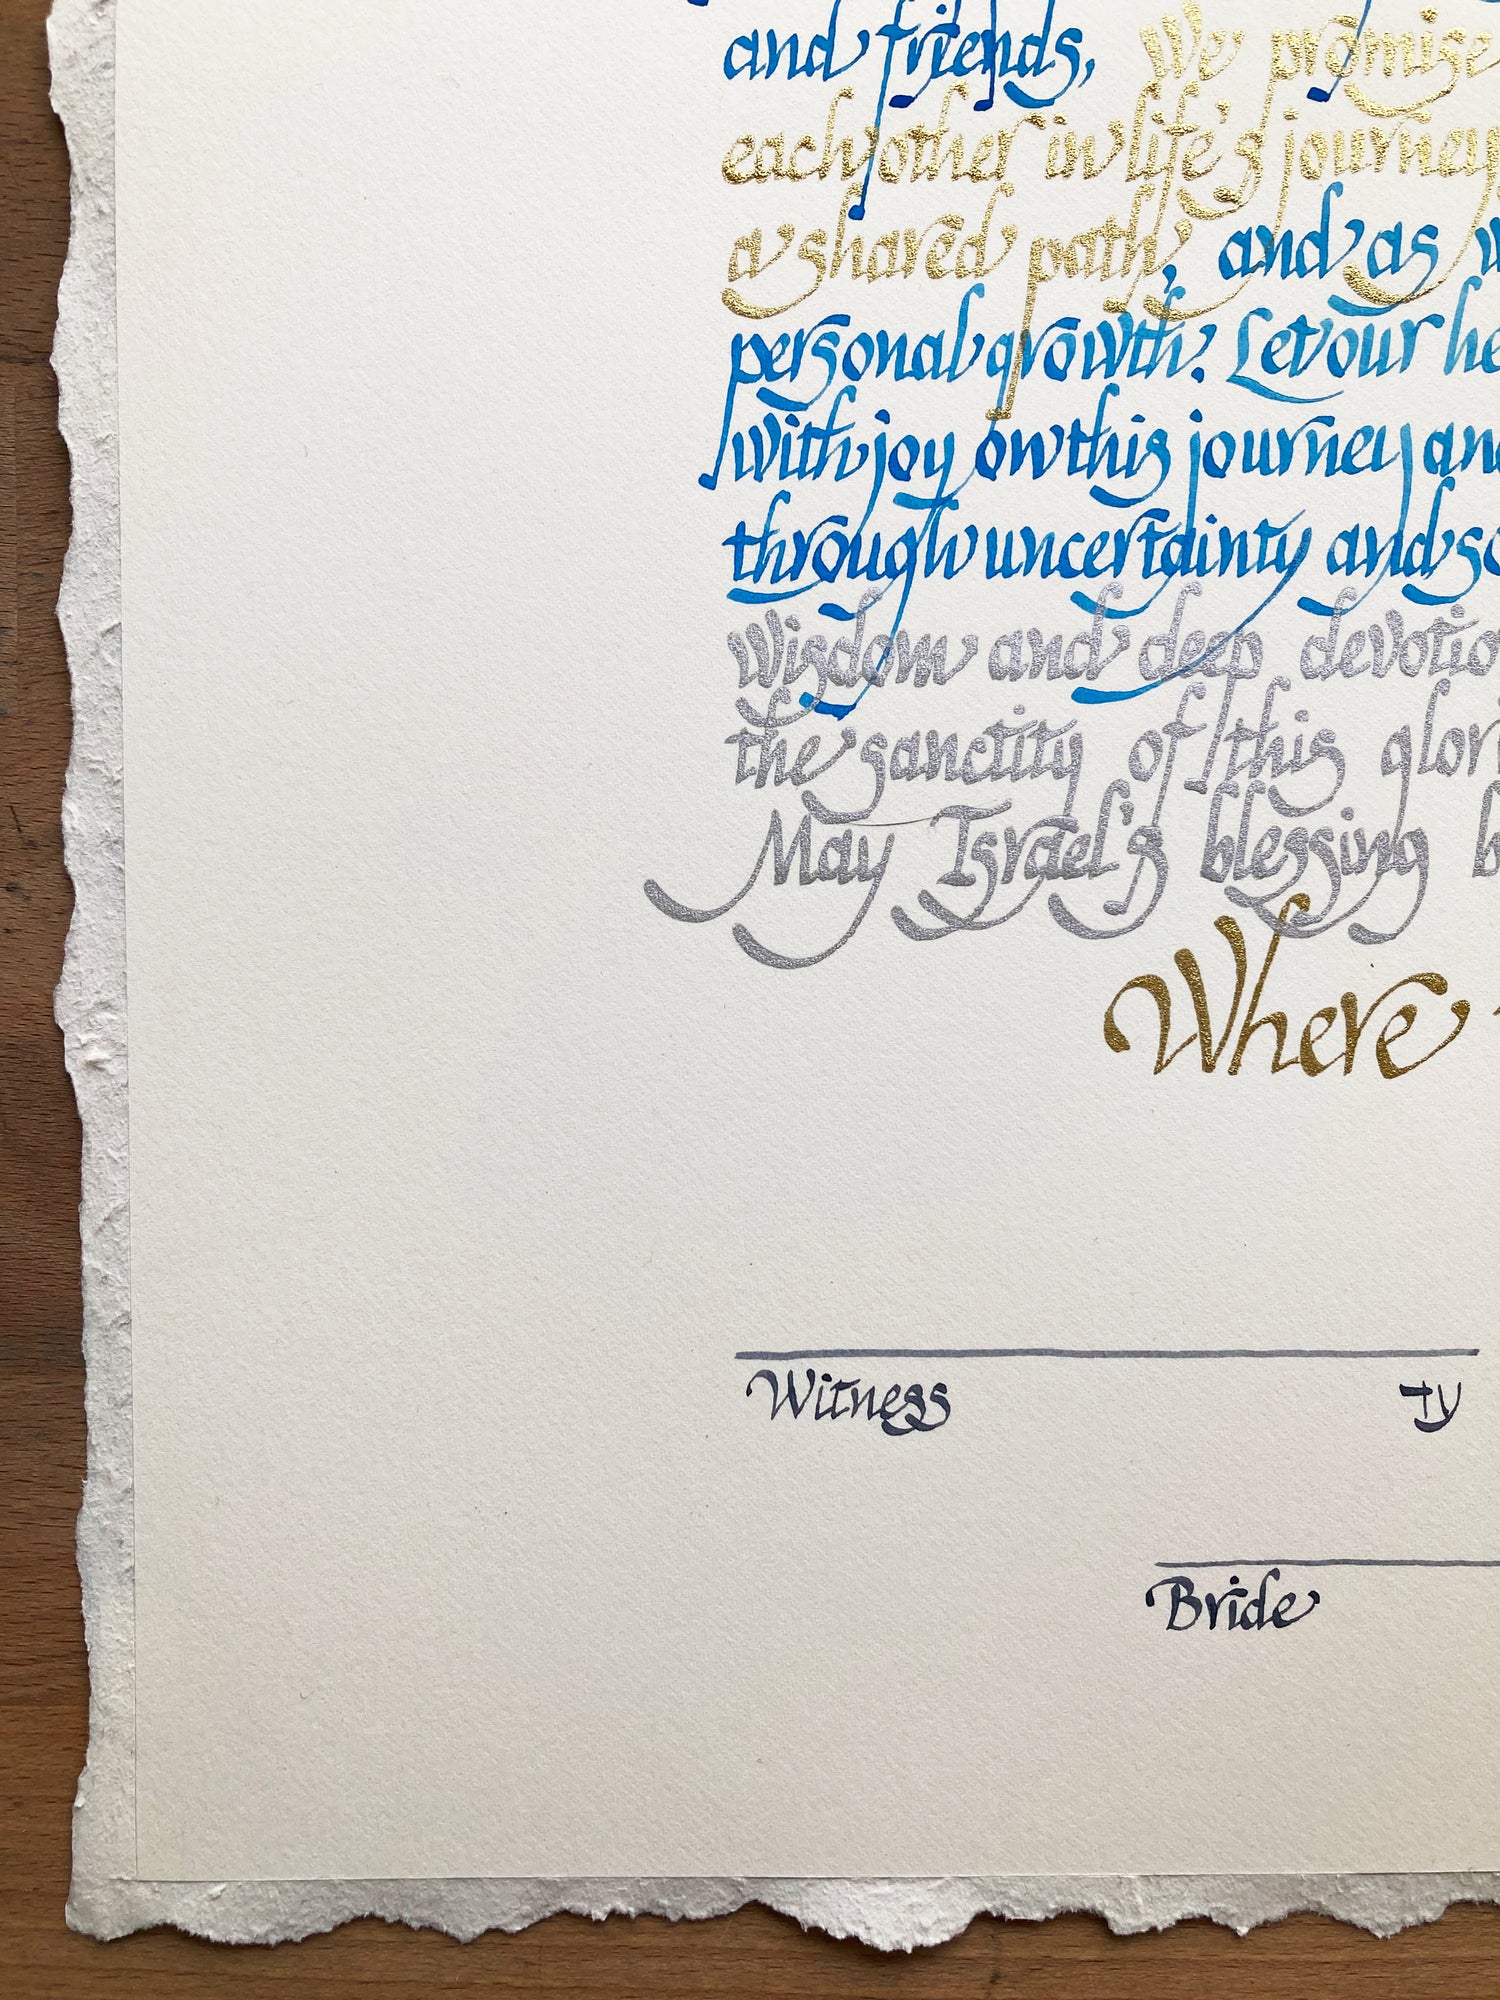 and friends, We promise
each other in life's journey
a shared path, and as
personal growth. Let our
with joy on this journey and
through uncertainty and
Wisdom and deep
the sanctity of this
May Israel's blessing
Where
Witness עד
Bride